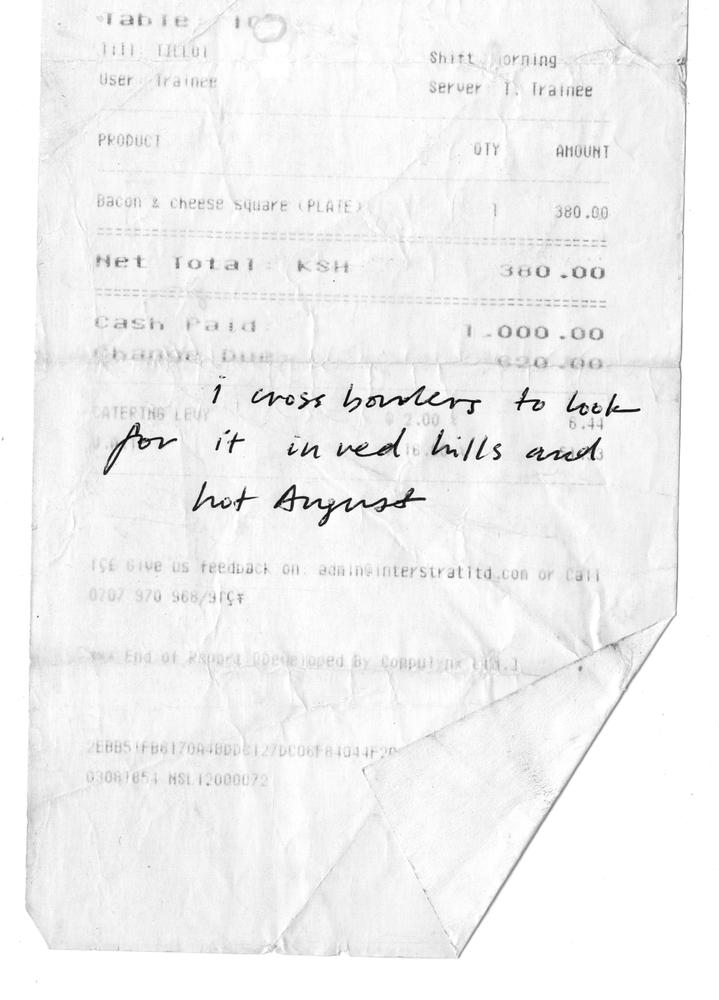 Table: 10
Till: TILL01 Shift Morning
User: Trainee Server T. Trainee
PRODUCT QTY AMOUNT
Bacon & cheese square (PLATE) 1 380.00
Net Total: KSH 380.00
Cash Paid 1,000.00
Change Due 620.00
i cross borders to look
CATERING LEVY 2.00 6.44
for it in red hills and
hot August
Give us feedback on: admin@interstratltd.com or Call
0707 970 968/9
End of Report Developed By Compulynx Ltd.]
03081654 NSL12000072